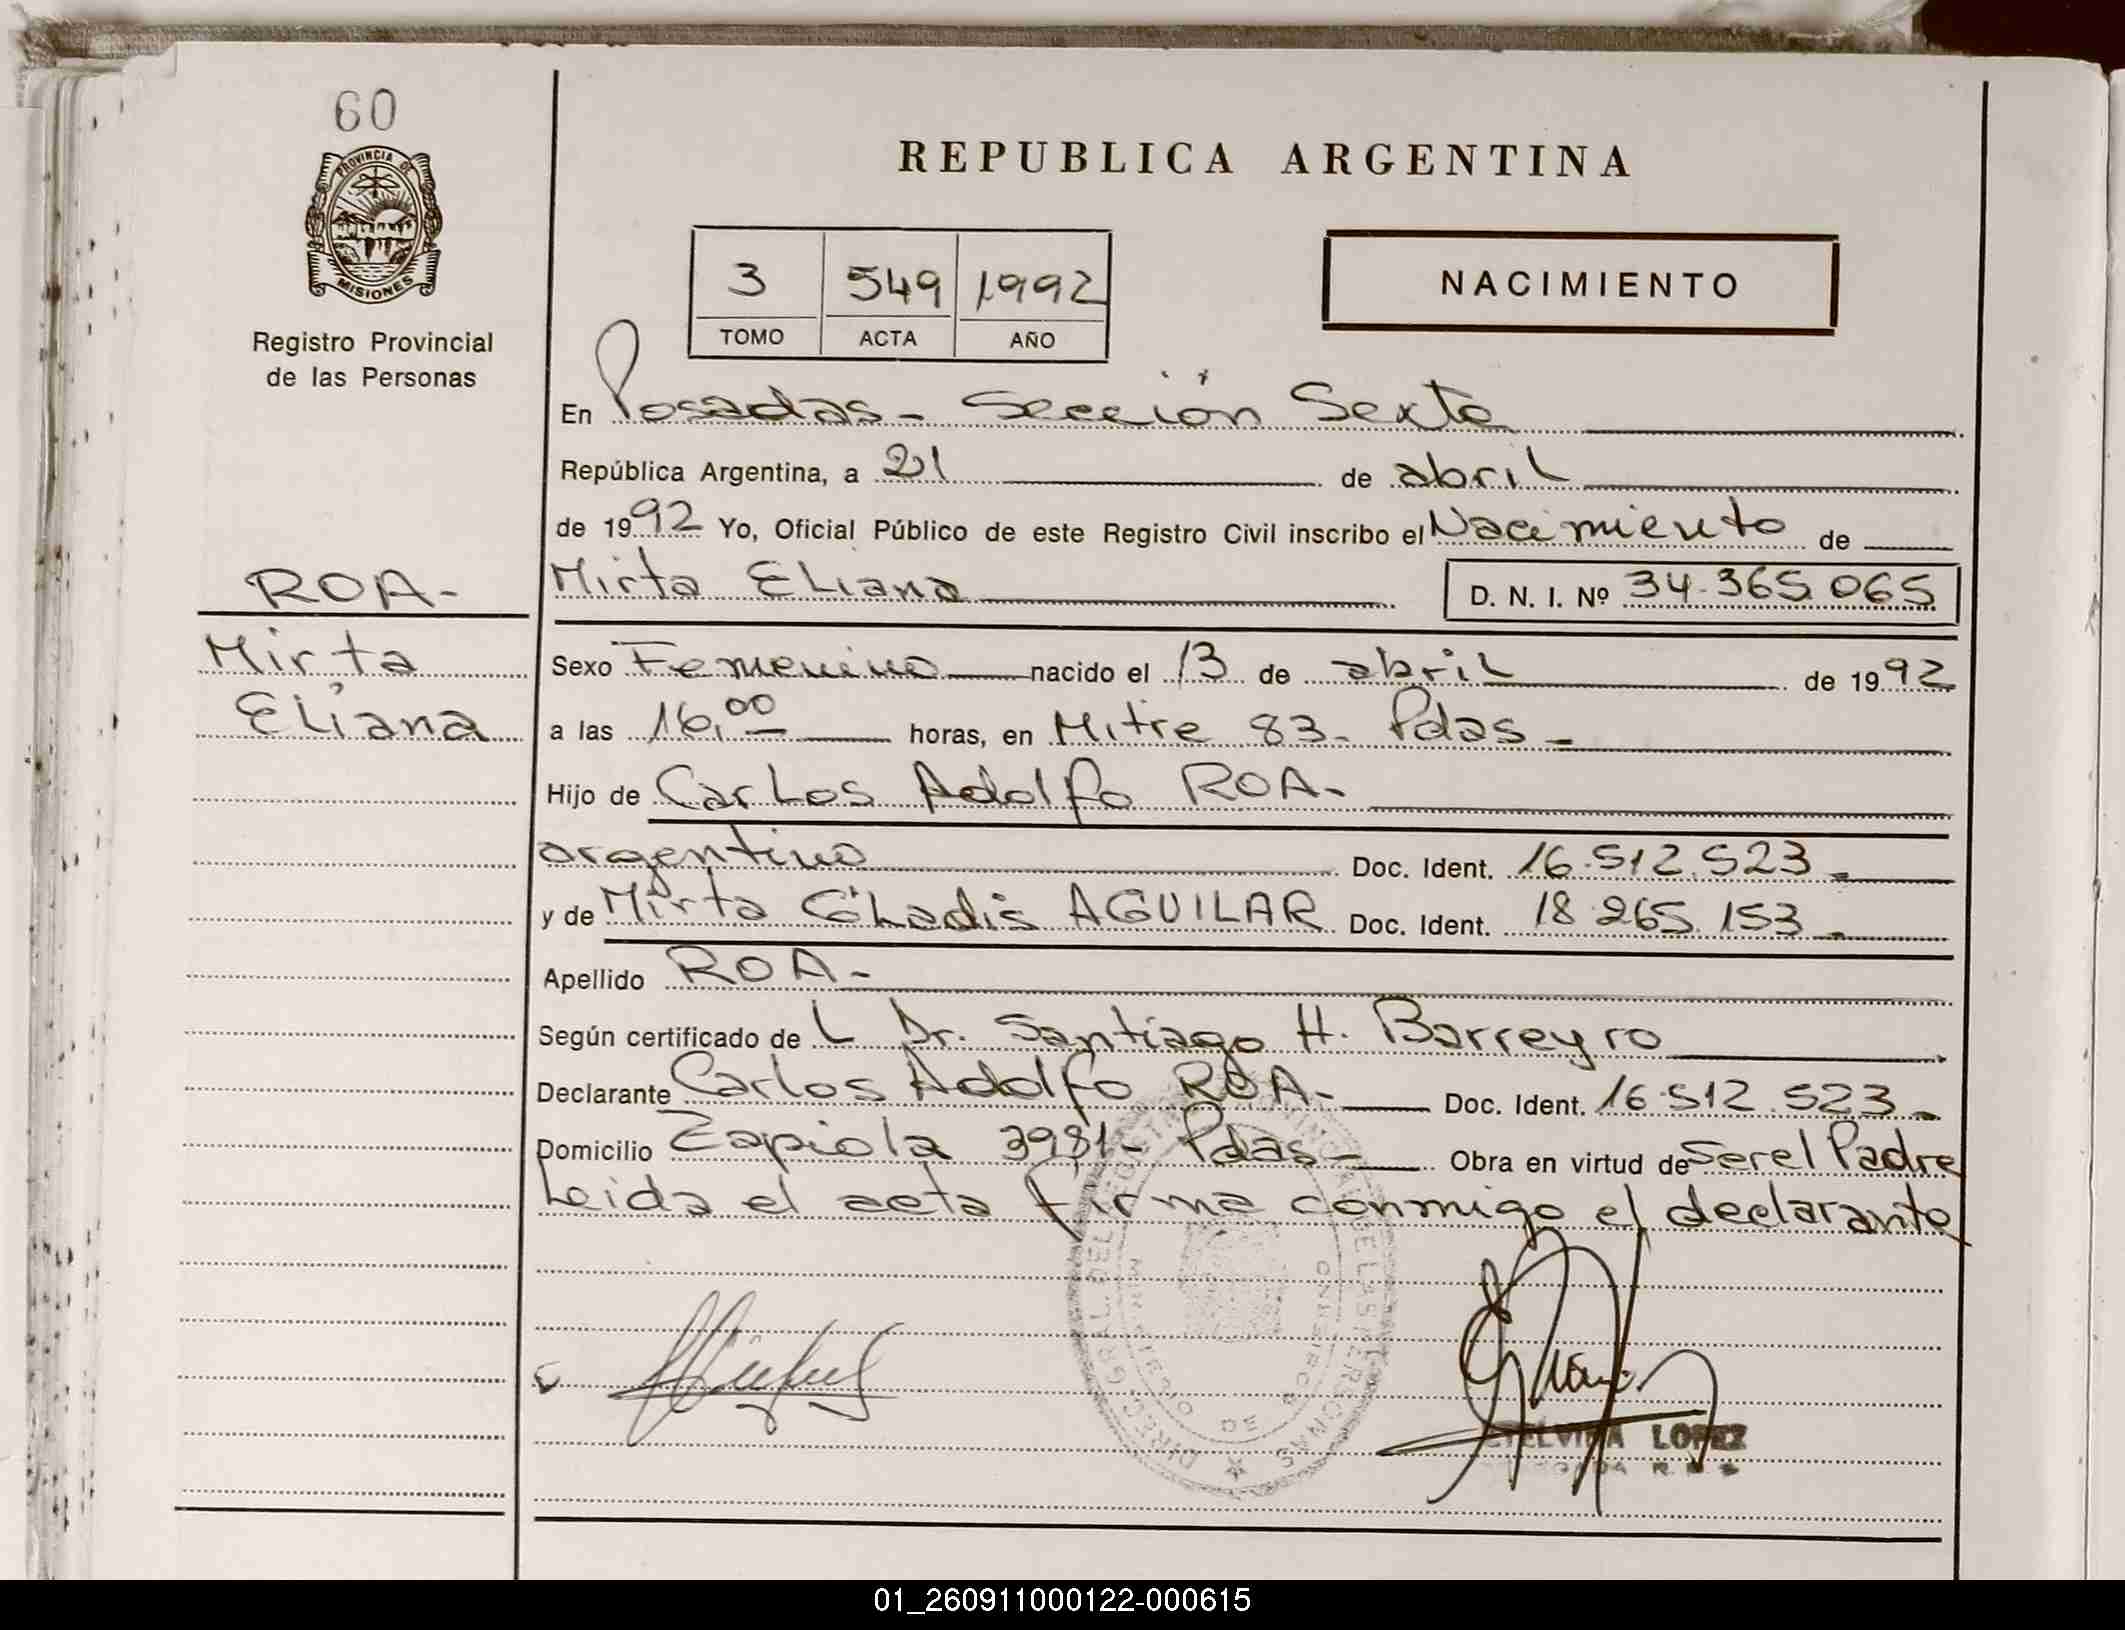 60
PROVINCIA DE
MISIONES
Registro Provincial
de las Personas
REPUBLICA ARGENTINA
3 549 1992
TOMO ACTA AÑO
NACIMIENTO
En Posadas - Sección Sexta
República Argentina, a 21 de abril
de 1992 Yo, Oficial Público de este Registro Civil inscribo el Nacimiento de
ROA-
Mirta Eliana D. N. I. Nº 34.365.065
Mirta
Eliana
Sexo Femenino nacido el 13 de abril de 1992
a las 16,00 horas, en Mitre 83- Pdas-
Hijo de Carlos Adolfo ROA-
argentino Doc. Ident. 16.512.523-
y de Mirta Ghladis AGUILAR Doc. Ident. 18.265.153-
Apellido ROA-
Según certificado de L Dr. Santiago H. Barreyro
Declarante Carlos Adolfo ROA- Doc. Ident. 16.512.523-
Domicilio Zapiola 3981- Pdas- Obra en virtud de Ser el Padre
Leida el acta firma conmigo el declarante
LOPEZ
01_260911000122-000615